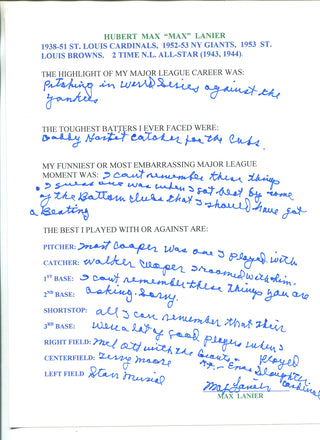 HUBERT MAX "MAX" LANIER
1938-51 ST. LOUIS CARDINALS, 1952-53 NY GIANTS, 1953 ST.
LOUIS BROWNS. 2 TIME N.L. ALL-STAR (1943, 1944).
THE HIGHLIGHT OF MY MAJOR LEAGUE CAREER WAS:
Pitching in World Series against the
Yankees
THE TOUGHEST BATTERS I EVER FACED WERE:
Gabby Hartnet catcher for the Cubs.
MY FUNNIEST OR MOST EMBARRASSING MAJOR LEAGUE
MOMENT WAS: I can't remember these things
I guess one was when I got beat by some
of the Bottom clubs that I should have got
a Beating
THE BEST I PLAYED WITH OR AGAINST ARE:
PITCHER: Mort Cooper was one I played with
CATCHER: Walker Cooper I roomed with him.
1ST BASE: I can't remember these things you are
2ND BASE: asking. Sorry.
SHORTSTOP: all I can remember that their
3RD BASE: were a lot of good players when I
RIGHT FIELD: Mel Ott with the Giants - played
CENTERFIELD: Terry Moore Enos Slaughter
LEFT FIELD Stan Musial Cardinals
Max Lanier
MAX LANIER